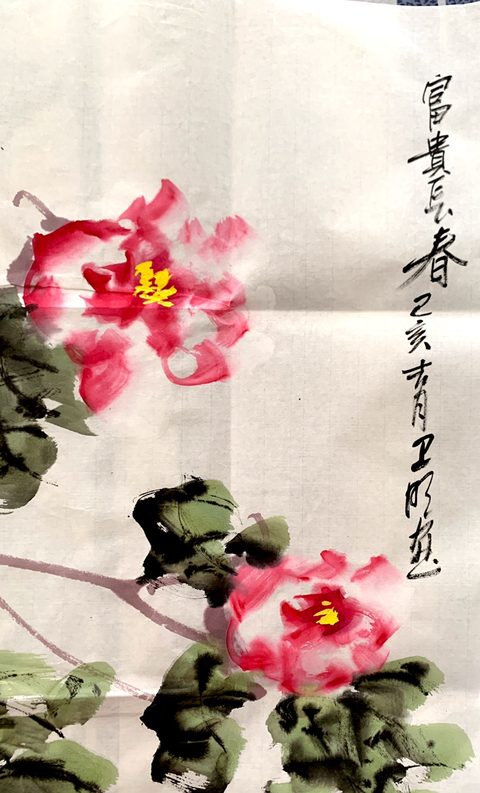 富貴長春己亥吉月卫明画